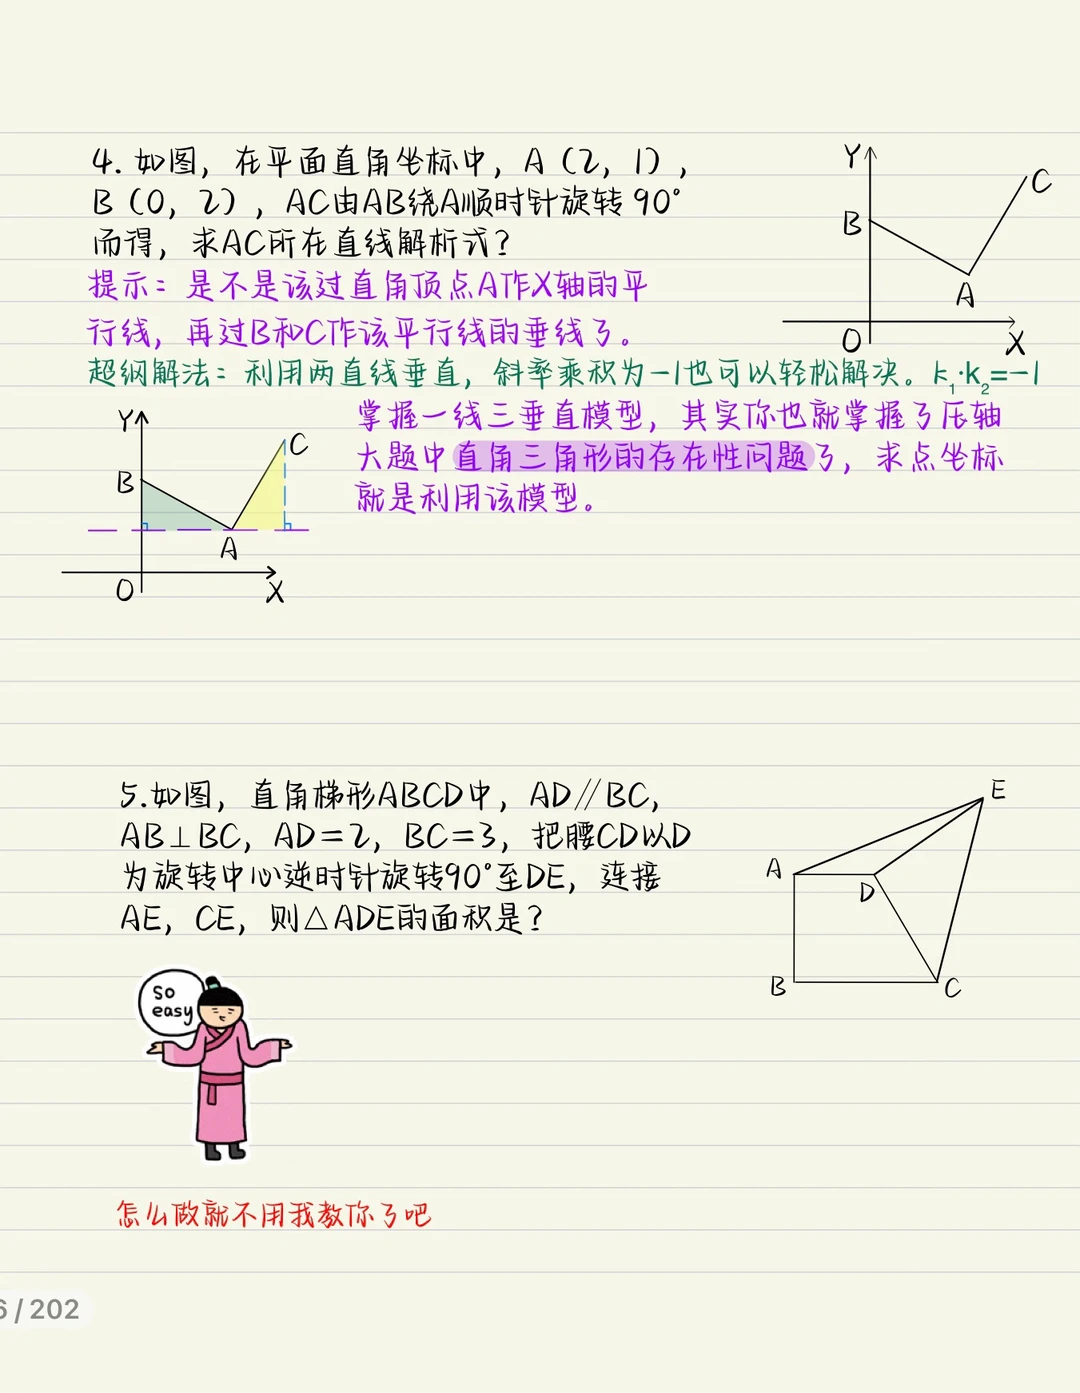 4. 如图，在平面直角坐标中，A（2，1），
B（0，2），AC由AB绕A顺时针旋转90°
而得，求AC所在直线解析式？
提示：是不是该过直角顶点A作X轴的平
行线，再过B和C作该平行线的垂线了。
超纲解法：利用两直线垂直，斜率乘积为-1也可以轻松解决。k₁·k₂=-1
Y
C
B
A
O
X
掌握一线三垂直模型，其实你也就掌握了压轴
大题中直角三角形的存在性问题了，求点坐标
就是利用该模型。
Y
C
B
A
O
X
5.如图，直角梯形ABCD中，AD∥BC，
AB⊥BC，AD=2，BC=3，把腰CD以D
为旋转中心逆时针旋转90°至DE，连接
AE，CE，则△ADE的面积是？
E
A
D
B
C
so
easy
怎么做就不用我教你了吧
6/202